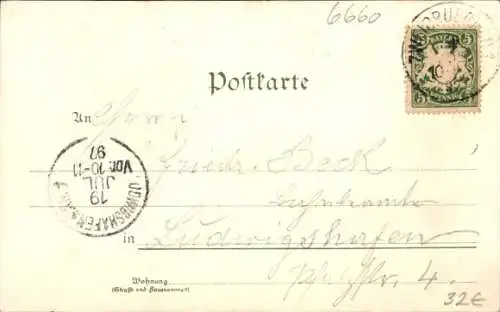 6660
5 BAYERN 5
PFENNIG
Postkarte
An Herrn
Friedr. Beck
LUDWIGSHAFEN
19
JUL
Vor. 10-11
97
in Ludwigshafen
Pfalzstr. 4.
Wohnung
(Straße und Hausnummer)
32€